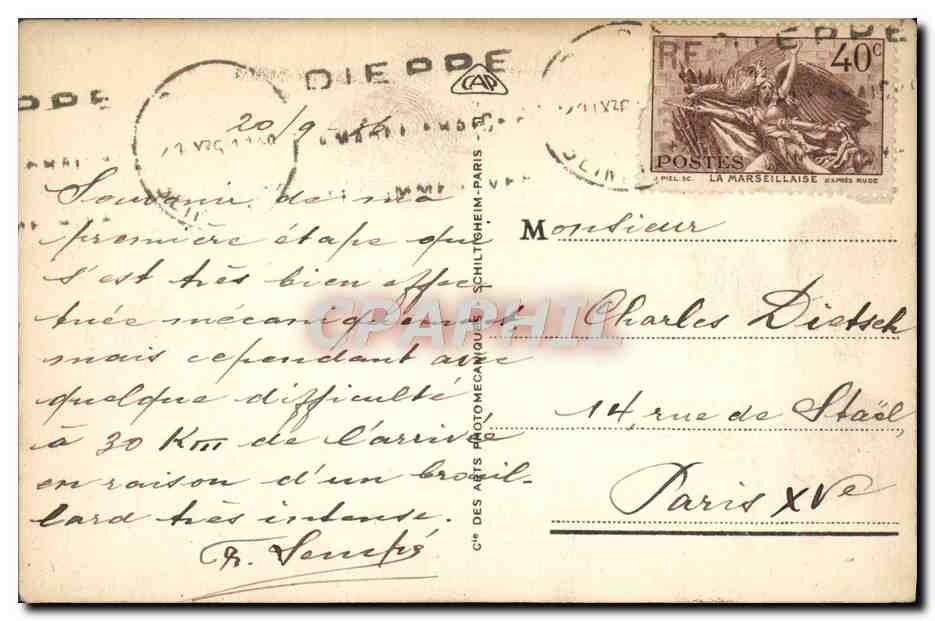 DIEPPE
DIEPPE
DIEPPE
CAP
RF
40c
POSTES
PIEL.SC. LA MARSEILLAISE D'APRÈS RUDE
20/9 - 36
Souvenir de ma
première étape qui
s'est très bien effec
tuée mécaniquement
mais cependant avec
quelque difficulté
à 30 Km de l'arrivée
en raison d'un brouil-
lard très intense.
Cie DES ARTS PHOTOMECANIQUES SCHILTIGHEIM-PARIS
Monsieur
Charles Dietsch
14, rue de Staël,
Paris XVe
CPAPHIL